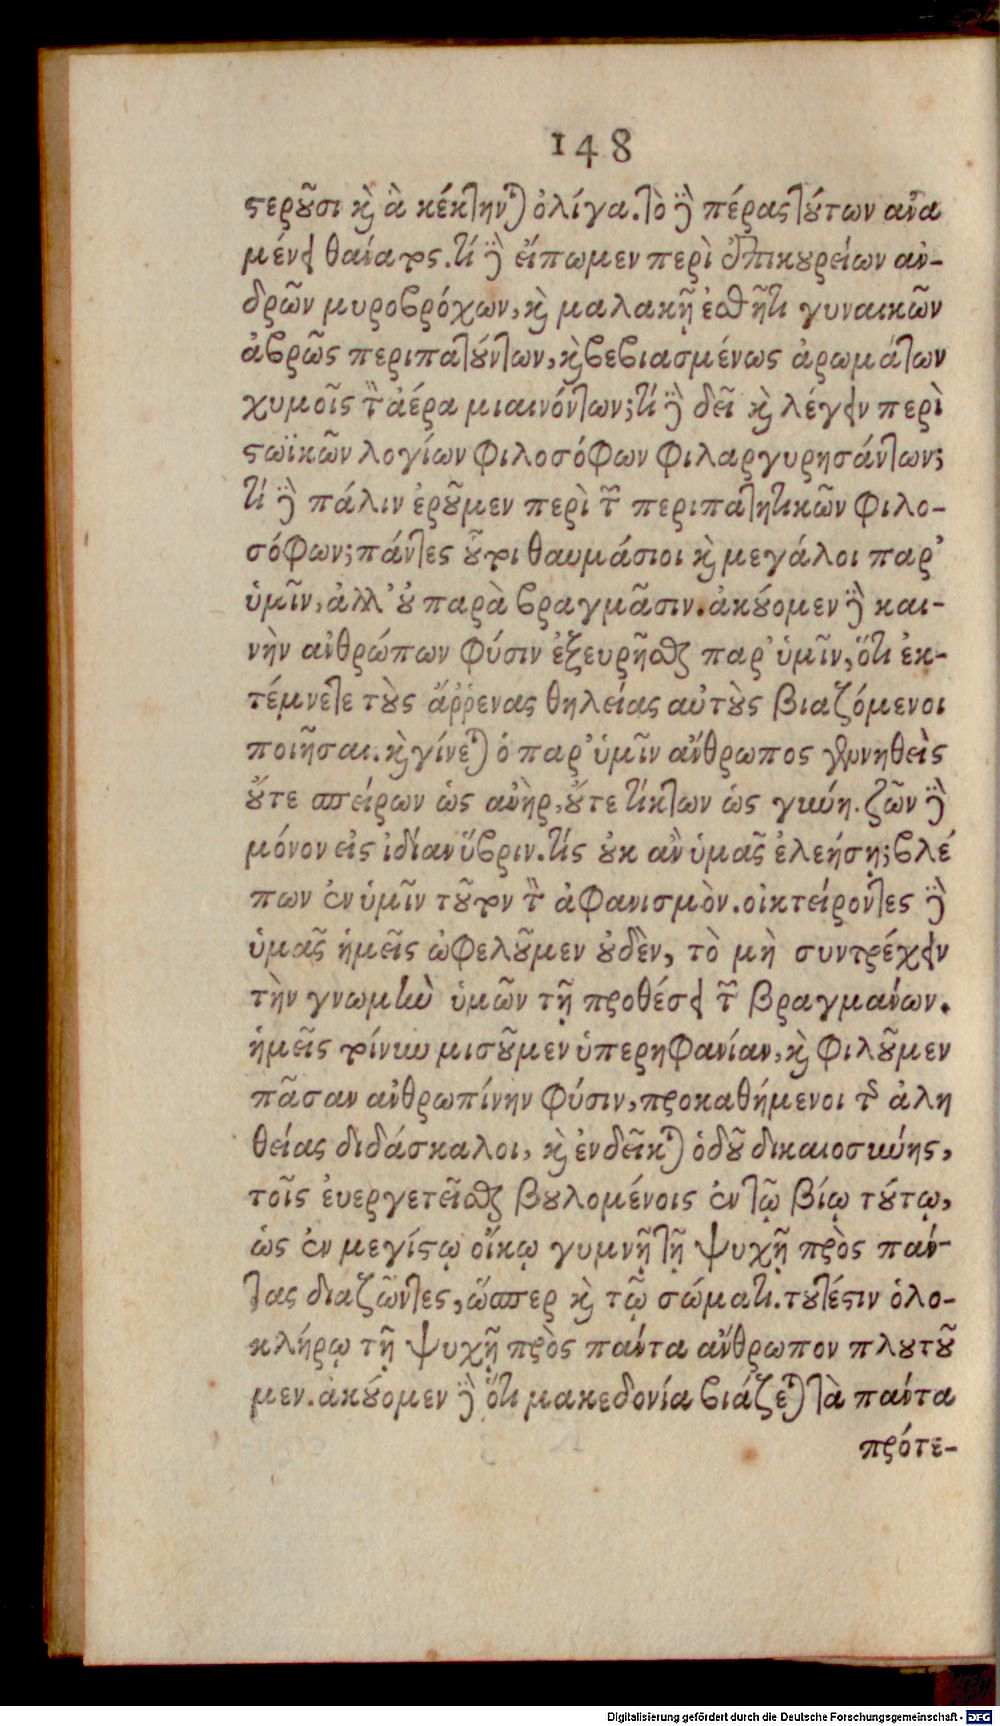 148
στεροῦσι καὶ ἃ κέκτηνται ὀλίγα. τὸ δὲ πέρας τούτων ἀνα
μένει θάνατος. τί δὲ εἴπωμεν περὶ ἐπικουρείων ἀν-
δρῶν μυροβρόχων, καὶ μαλακῇ ἐσθῆτι γυναικῶν
ἁβρῶς περιπατούντων, καὶ βεβιασμένως ἀρωμάτων
χυμοῖς τὸν ἀέρα μιαινόντων; τί δὲ δεῖ καὶ λέγειν περὶ
στωϊκῶν λογίων φιλοσόφων φιλαργυρησάντων;
τί δὲ πάλιν ἐροῦμεν περὶ τῶν περιπατητικῶν φιλο-
σόφων; πάντες οὗτοι θαυμάσιοι καὶ μεγάλοι παρ'
ὑμῖν, ἀλλ' οὐ παρὰ βραγμᾶσιν. ἀκούομεν δὲ και-
νὴν ἀνθρώπων φύσιν ἐξευρῆσθαι παρ' ὑμῖν, ὅτι ἐκ-
τέμνετε τοὺς ἄῤῥενας θηλείας αὐτοὺς βιαζόμενοι
ποιῆσαι. καὶ γίνεται ὁ παρ' ὑμῖν ἄνθρωπος γεννηθεὶς
οὔτε σπείρων ὡς ἀνὴρ, οὔτε τίκτων ὡς γυνή. ζῶν δὲ
μόνον εἰς ἰδίαν ὕβριν. τίς οὐκ ἂν ὑμᾶς ἐλεήσῃ; βλέ
πων ἐν ὑμῖν τοῦτον τὸν ἀφανισμὸν. οἰκτείροντες δὲ
ὑμᾶς ἡμεῖς ὠφελοῦμεν οὐδὲν, τὸ μὴ συντρέχειν
τὴν γνώμην ὑμῶν τῇ προθέσει τῶν βραγμάνων.
ἡμεῖς τοίνυν μισοῦμεν ὑπερηφανίαν, καὶ φιλοῦμεν
πᾶσαν ἀνθρωπίνην φύσιν, προκαθήμενοι τῆς ἀλη
θείας διδάσκαλοι, καὶ ἐνδεῖκται ὁδοῦ δικαιοσύνης,
τοῖς ἐυεργετεῖσθαι βουλομένοις ἐν τῷ βίῳ τούτῳ,
ὡς ἐν μεγίστῳ οἴκῳ γυμνῇ τῇ ψυχῇ πρὸς πάν-
τας διαζῶντες, ὥσπερ καὶ τῷ σώματι. τουτέστιν ὁλο-
κλήρῳ τῇ ψυχῇ πρὸς πάντα ἄνθρωπον πλουτοῦ
μεν. ἀκούομεν δὲ ὅτι μακεδονία βιάζεται τὰ πάντα
πρότε-
Digitalisierung gefördert durch die Deutsche Forschungsgemeinschaft - DFG